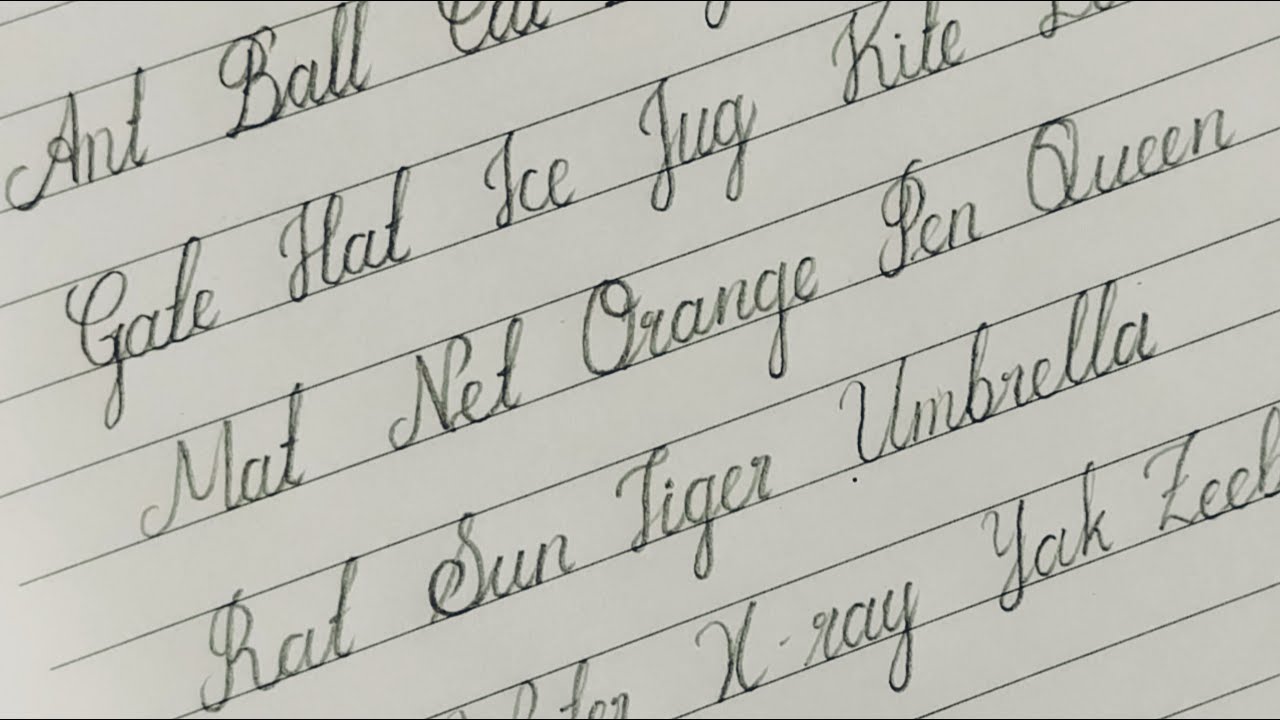 Ant Ball Cat
Gate Hat Ice Jug Kite
Mat Net Orange Pen Queen
Rat Sun Tiger Umbrella
X-ray Yak